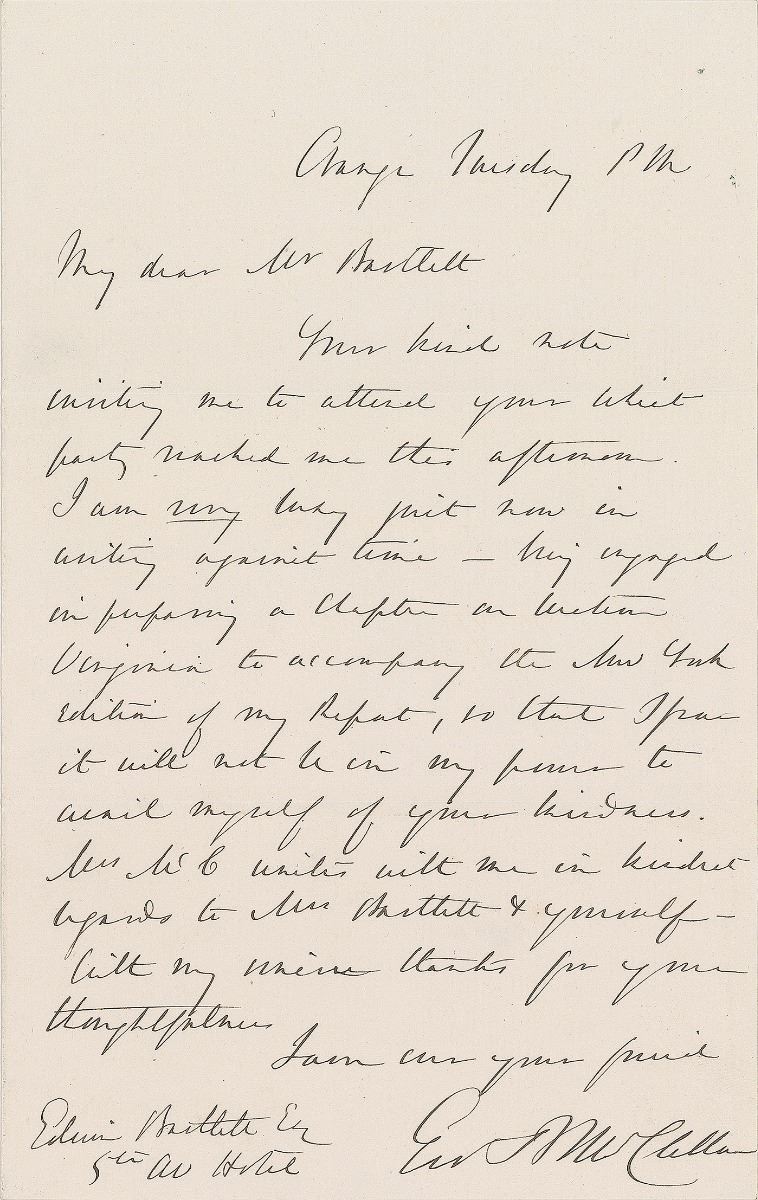 Orange Tuesday PM
My dear Mr Bartlett
Your kind note
inviting me to attend your Whist
party reached me this afternoon.
I am very busy just now in
writing against time – being engaged
in preparing a Chapter on Western
Virginia to accompany the New York
Edition of my Report, so that I fear
it will not be in my power to
avail myself of your kindness.
Mrs McC unites with me in kindest
regards to Mrs Bartlett & yourself –
With my sincere thanks for your
thoughtfulness
I am ever your friend
Geo B McClellan
Edwin Bartlett Esq
5th Av Hotel